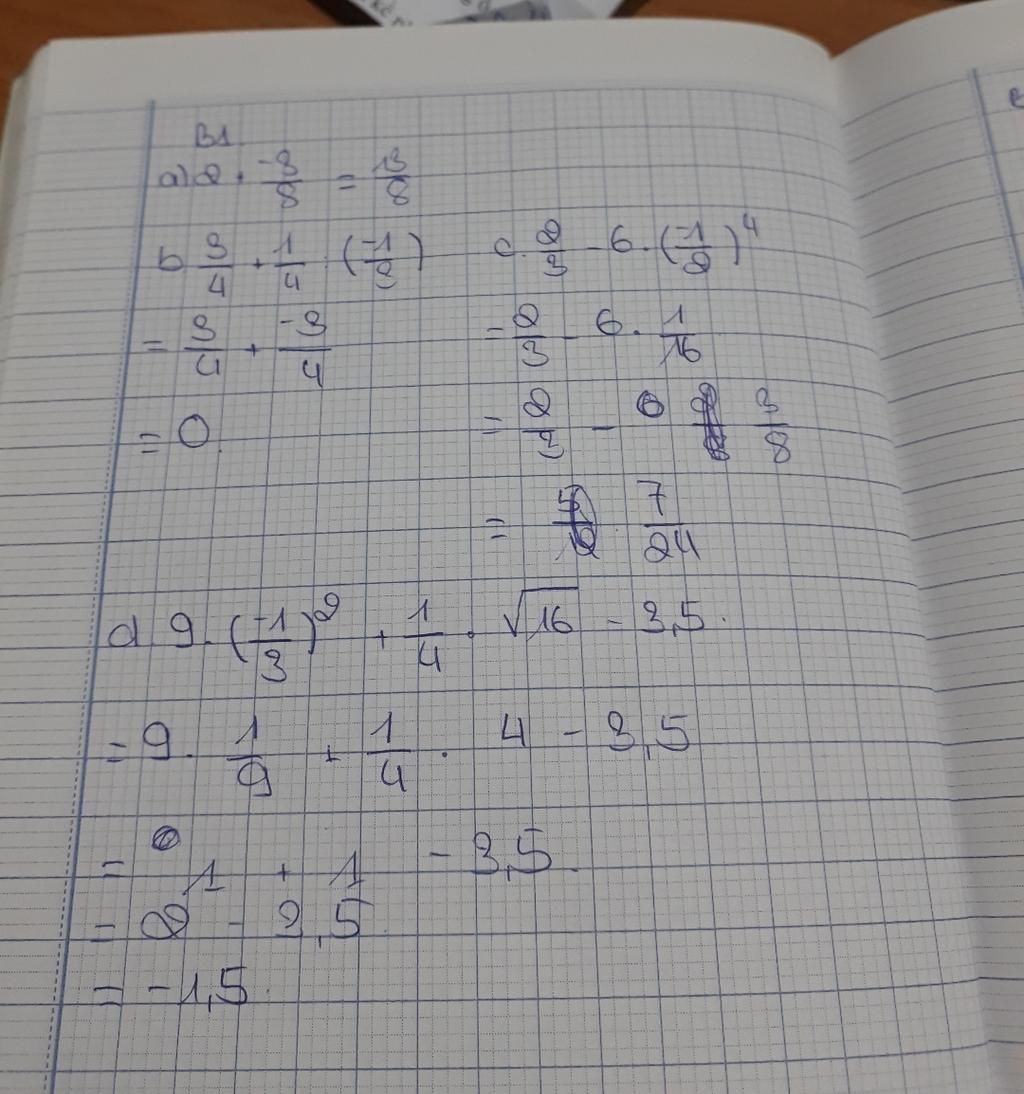 B1
a) 2 + \frac{-3}{8} = \frac{13}{8}
b \frac{3}{4} + \frac{1}{4} \cdot (\frac{-1}{3})
= \frac{3}{4} + \frac{-3}{4}
= 0
c. \frac{2}{3} - 6 \cdot (\frac{-1}{2})^4
= \frac{2}{3} - 6 \cdot \frac{1}{16}
= \frac{2}{3} - \frac{3}{8}
= \frac{7}{24}
d. 9 \cdot (\frac{-1}{3})^2 + \frac{1}{4} \cdot \sqrt{16} - 3,5.
= 9 \cdot \frac{1}{9} + \frac{1}{4} \cdot 4 - 3,5
= 1 + 1 - 3,5.
= 2 - 3,5.
= -1,5.